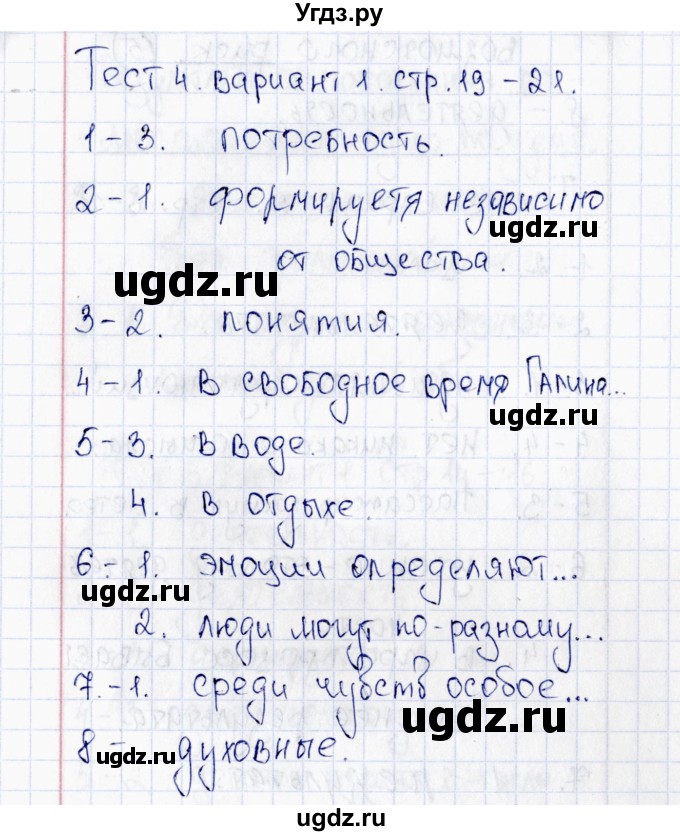 Угдз.ру
Тест 4. вариант 1. стр. 19-21.
1-3. потребность.
2-1. формируетя независимо
ugdz.ru
от общества.
ugdz.ru
3-2. понятия.
4-1. в свободное время Галина...
ugdz.ru
5-3. в воде.
4. в отдыхе.
6-1. эмоции определяют...
ugdz.ru
2. люди могут по-разному...
7.-1. среди чувств особое...
ugdz.ru
8- духовные.
ugdz.ru
ugdz.ru
ugdz.ru